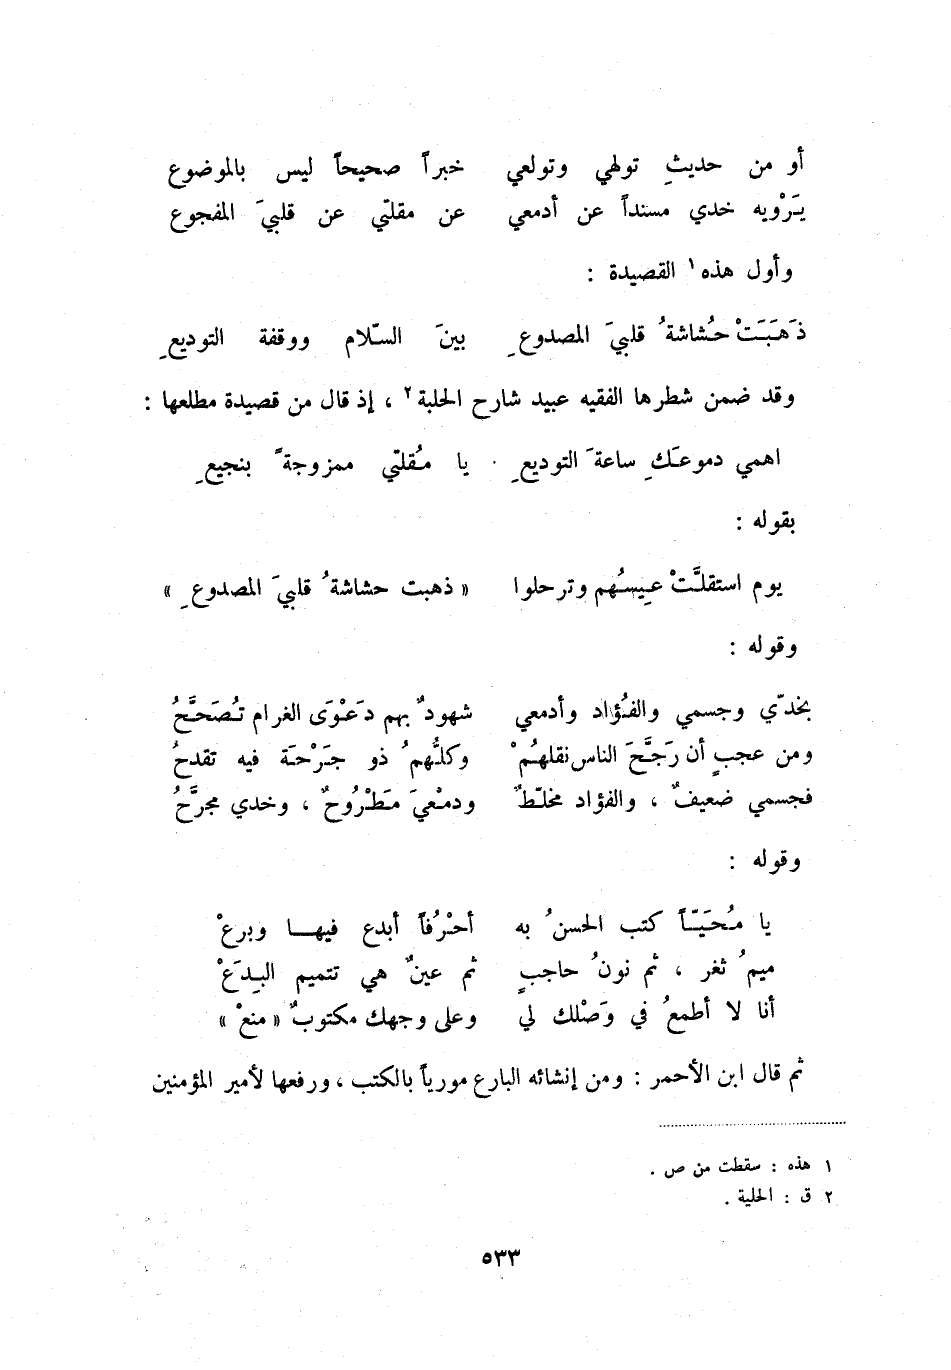 أو من حديثِ تولهي وتولعي خبراً صحيحاً ليس بالموضوع
يَرْويه خدي مسنداً عن أدمعي عن مقلتي عن قلبيَ المفجوع
وأول هذه١ القصيدة :
ذَهَبَتْ حُشاشةُ قلبيَ المصدوعِ بينَ السّلام ووقفة التوديعِ
وقد ضمن شطرها الفقيه عبيد شارح الحلبة٢ ، إذ قال من قصيدة مطلعها :
اهمي دموعَكِ ساعةَ التوديعِ يا مُقلتي ممزوجةً بنجيعِ
بقوله :
يوم استقلَّتْ عِيسُهم وترحلوا « ذهبت حشاشةُ قلبيَ المصدوعِ »
وقوله :
بخدّي وجسمي والفُؤاد وأدمعي شهودٌ بهم دَعْوَى الغرام تُصَحَّحُ
ومن عجبٍ أن رَجَّحَ الناس نقلهُمْ وكلُّهمُ ذو جَرْحَة فيه تقدحُ
فجسمي ضعيفٌ ، والفؤاد مخلّطٌ ودمْعيَ مَطْرُوحٌ ، وخدي مجرَّحُ
وقوله :
يا مُحَيّاً كتب الحسنُ به أحْرُفاً أبدع فيهــا وبرعْ
ميمُ ثغر ، ثم نونُ حاجبٍ ثم عينٌ هي تتميم البِدَعْ
أنا لا أطمعُ في وَصْلك لي وعلى وجهك مكتوبٌ « منعْ »
ثم قال ابن الأحمر : ومن إنشائه البارع مورياً بالكتب ، ورفعها لأمير المؤمنين
١ هذه : سقطت من ص .
٢ ق : الحلية .
٥٣٣